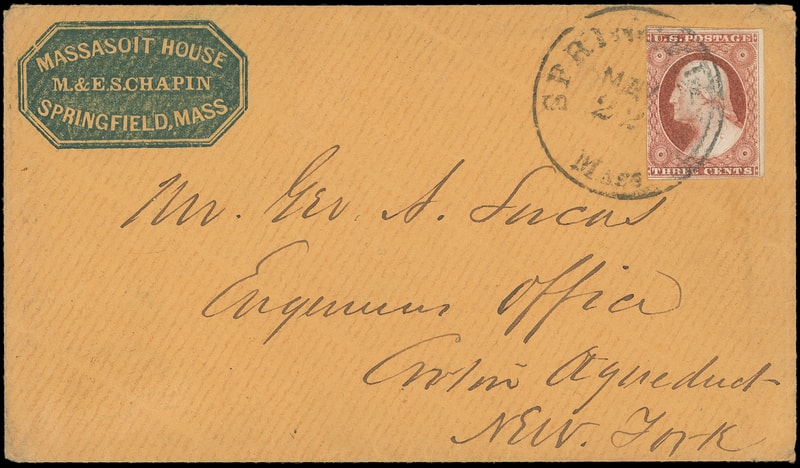 MASSASOIT HOUSE
M. & E.S. CHAPIN
SPRINGFIELD, MASS.
SPRING
MAY
22
MASS
U.S. POSTAGE
THREE CENTS
Mr. Geo. A. Lucas
Engeneers Office
Croton Aqueduct
New. York